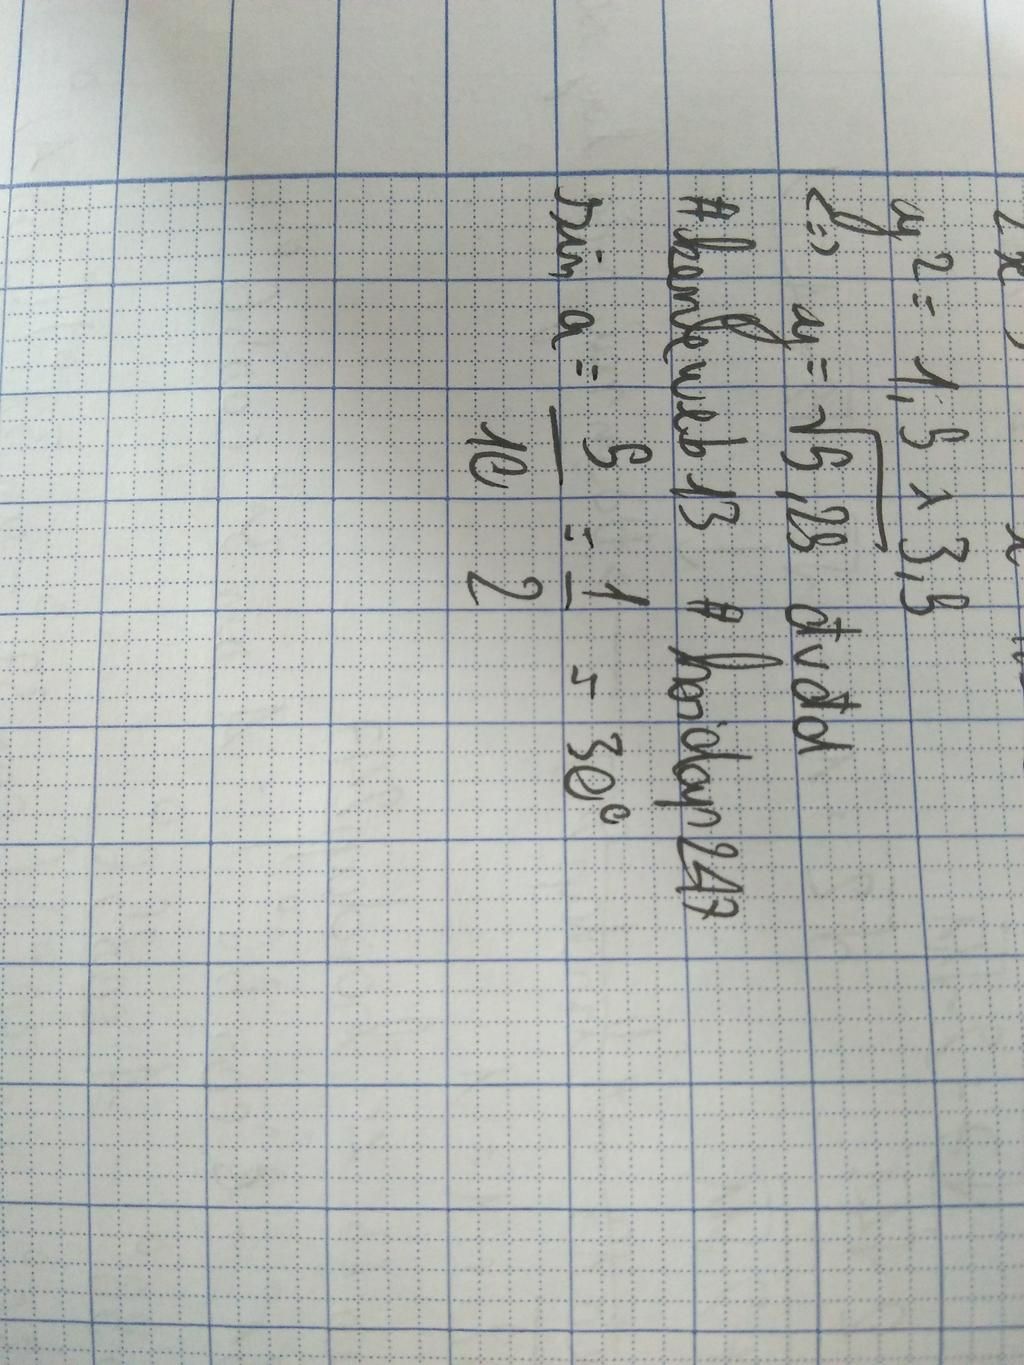 y 2 = 1,5 x 3,5
<=> y = √5,25 đvđd
#konfeweb13 # hoidap247
Sin a = 5/10 = 1/2 = 30°